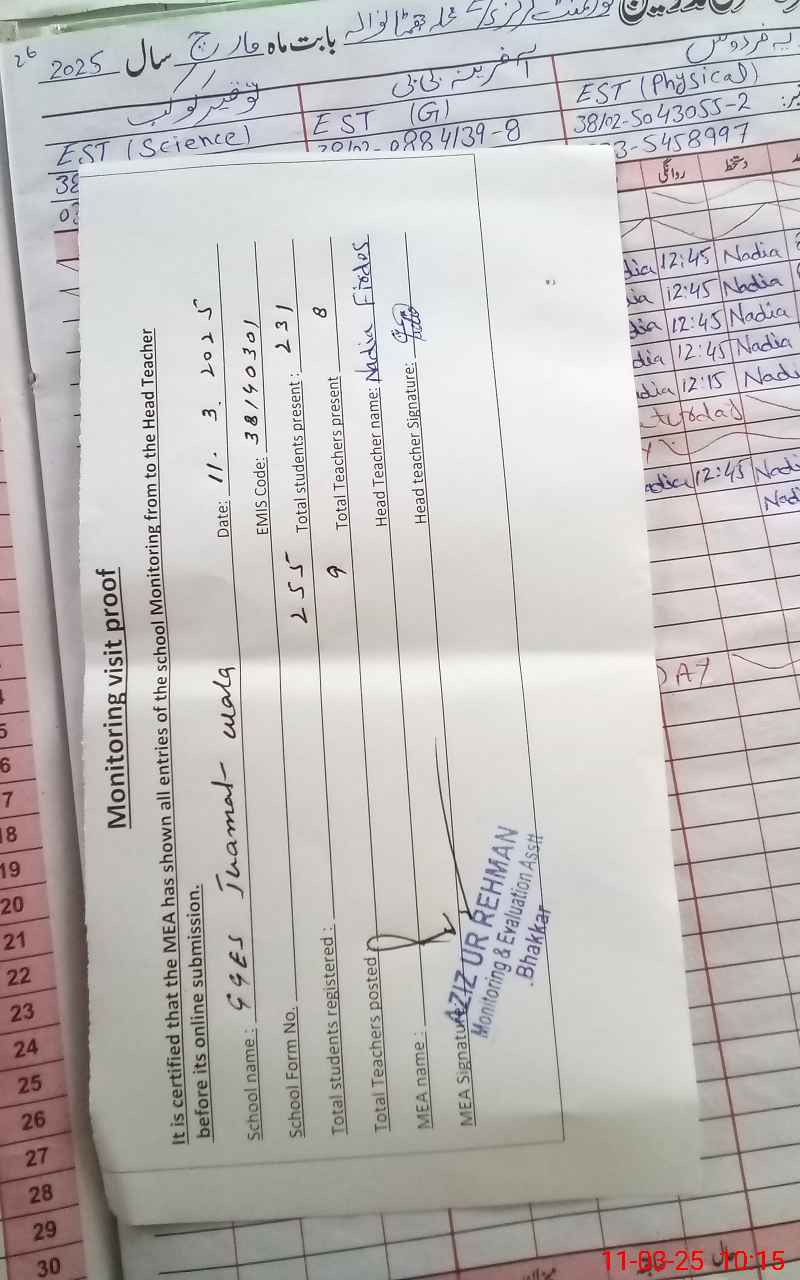 26
2025 سال مارچ بابت ماہ
توقیر کوکب
آفرینہ بی بی
EST (Science)
EST (G)
EST (Physical)
38
38102-0884139-8
38102-5043055-2
03
3-5458997
روانگی دستخط
dia 12:45 Nadia
ia 12:45 Nadia
dia 12:45 Nadia
dia 12:45 Nadia
dia 12:15 Nadi
turday
adia 12:45 Nadi
Nad
DAY
Monitoring visit proof
It is certified that the MEA has shown all entries of the school Monitoring from to the Head Teacher
before its online submission.
School name : GGES Jhamat wala Date: 11. 3. 2025
School Form No. EMIS Code: 38140301
Total students registered : 255 Total students present : 231
Total Teachers posted 9 Total Teachers present 8
MEA name : Head Teacher name: Nadia Firdos
MEA Signature Head teacher Signature:
AZIZ UR REHMAN
Monitoring & Evaluation Asstt
Bhakkar
5
6
7
18
19
20
21
22
23
24
25
26
27
28
29
30
11-03-25 10:15